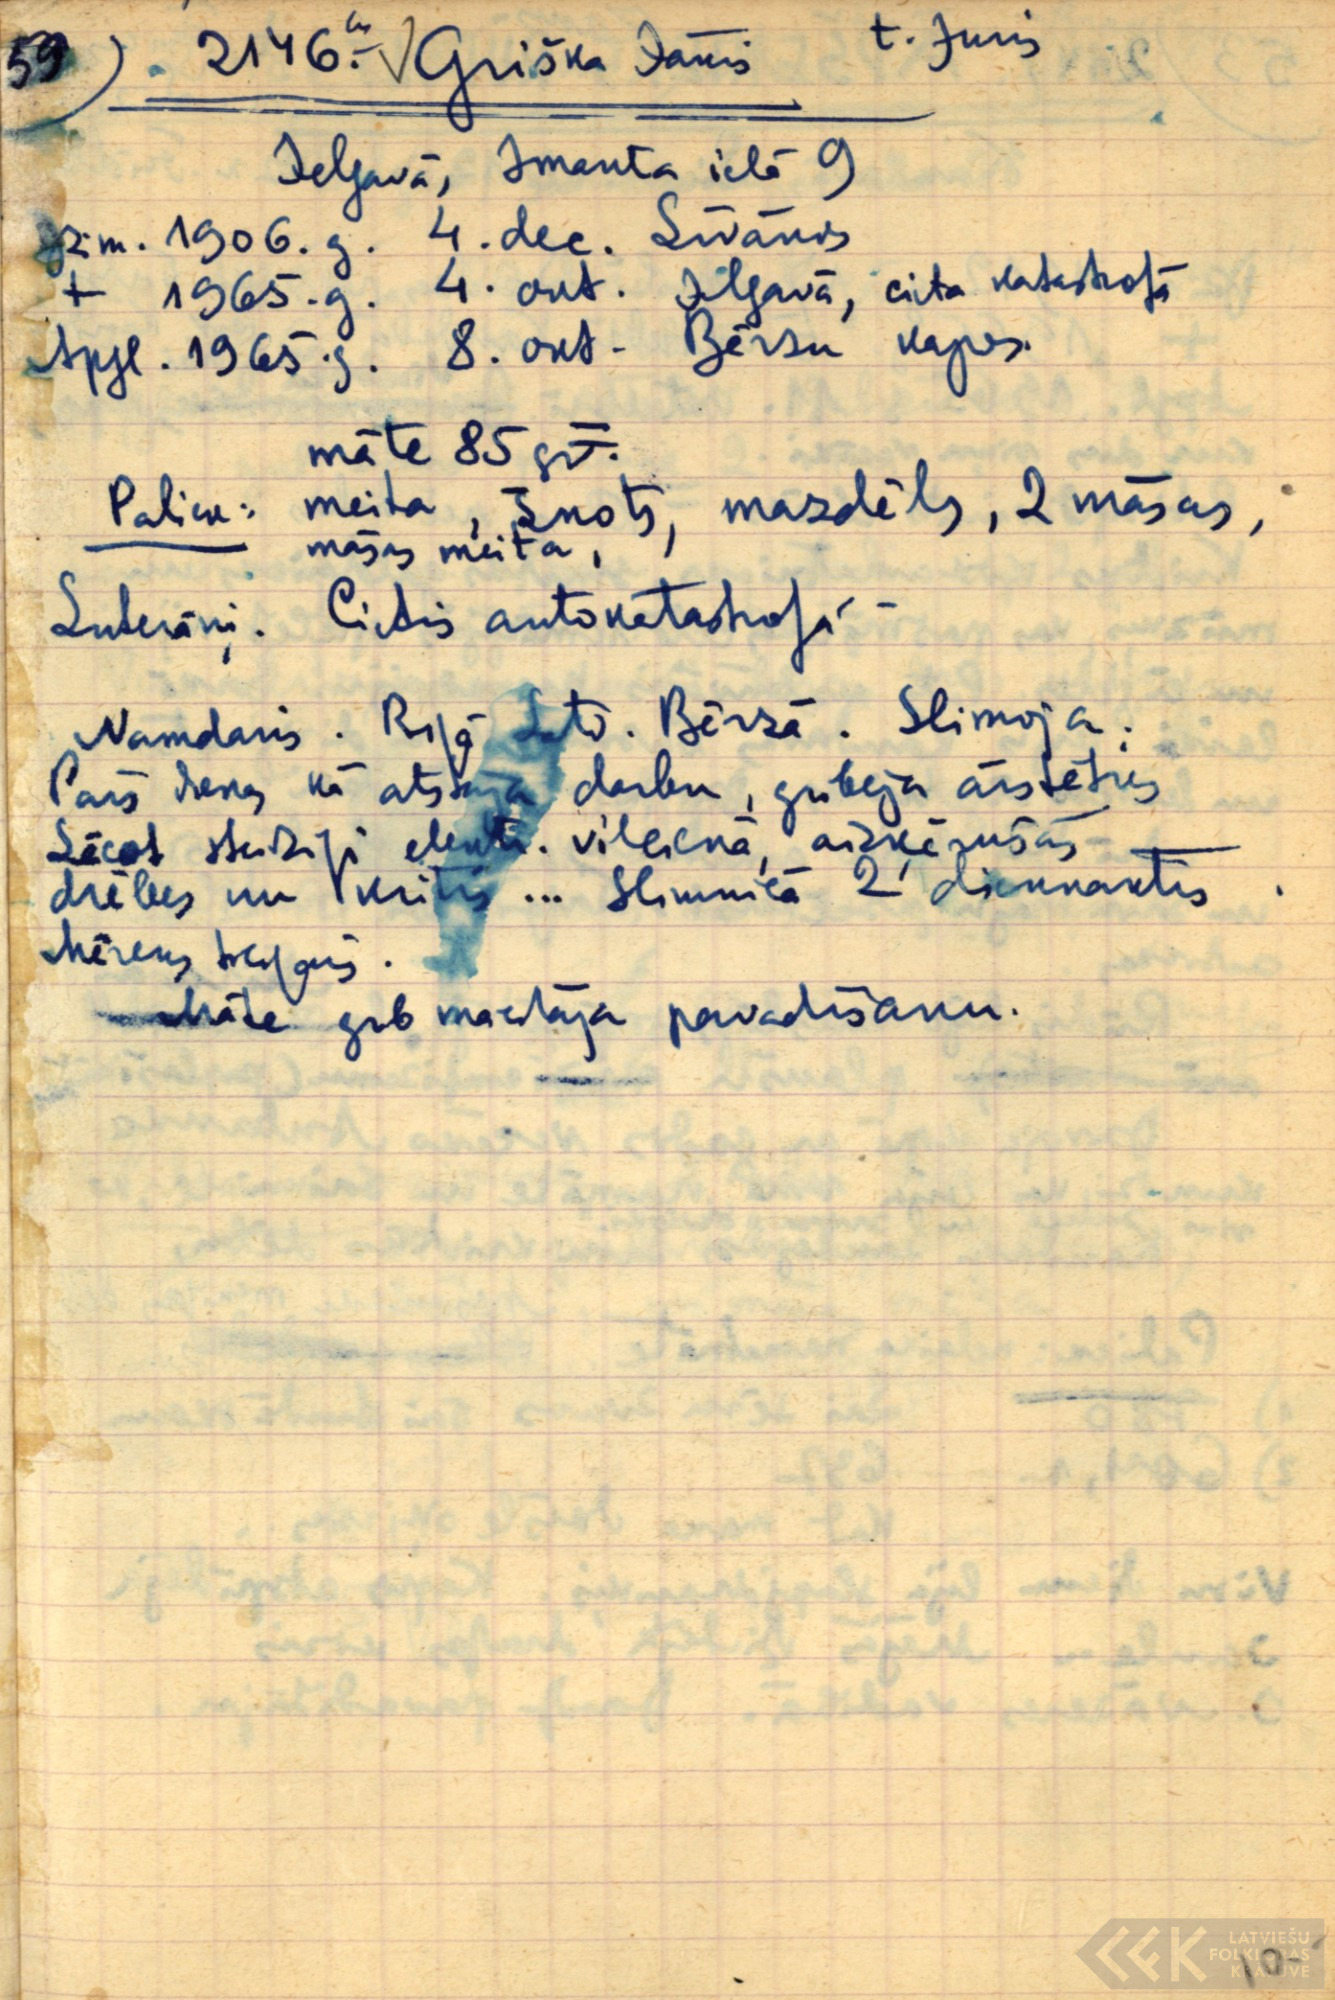 59) 2146. √ Griška Jānis t. Juris
Jelgavā, Imanta ielā 9
dzim. 1906. g. 4. dec. Līvānos
+ 1965. g. 4. okt. Jelgavā, cieta katastrofā
Apgl. 1965. g. 8. okt. Bērzu kapos.
māte 85 g.v.
Paliek: meita, znots, mazdēls, 2 māsas,
māsas meita,
Luterāņi. Cietis autokatastrofā -
Namdaris. Rīgā Bērzā. Slimoja.
Pārs dienas kā atstāja darbu, gribēja ārstēties
Lēcot steidzīgi elektr. vilcienā, aizķērušās
drēbes un kritis ... Slimnīcā 2 diennaktis.
Mērens
Māte grib mācītāja pavadīšanu.
LATVIEŠU
FOLKLORAS
KRĀTUVE